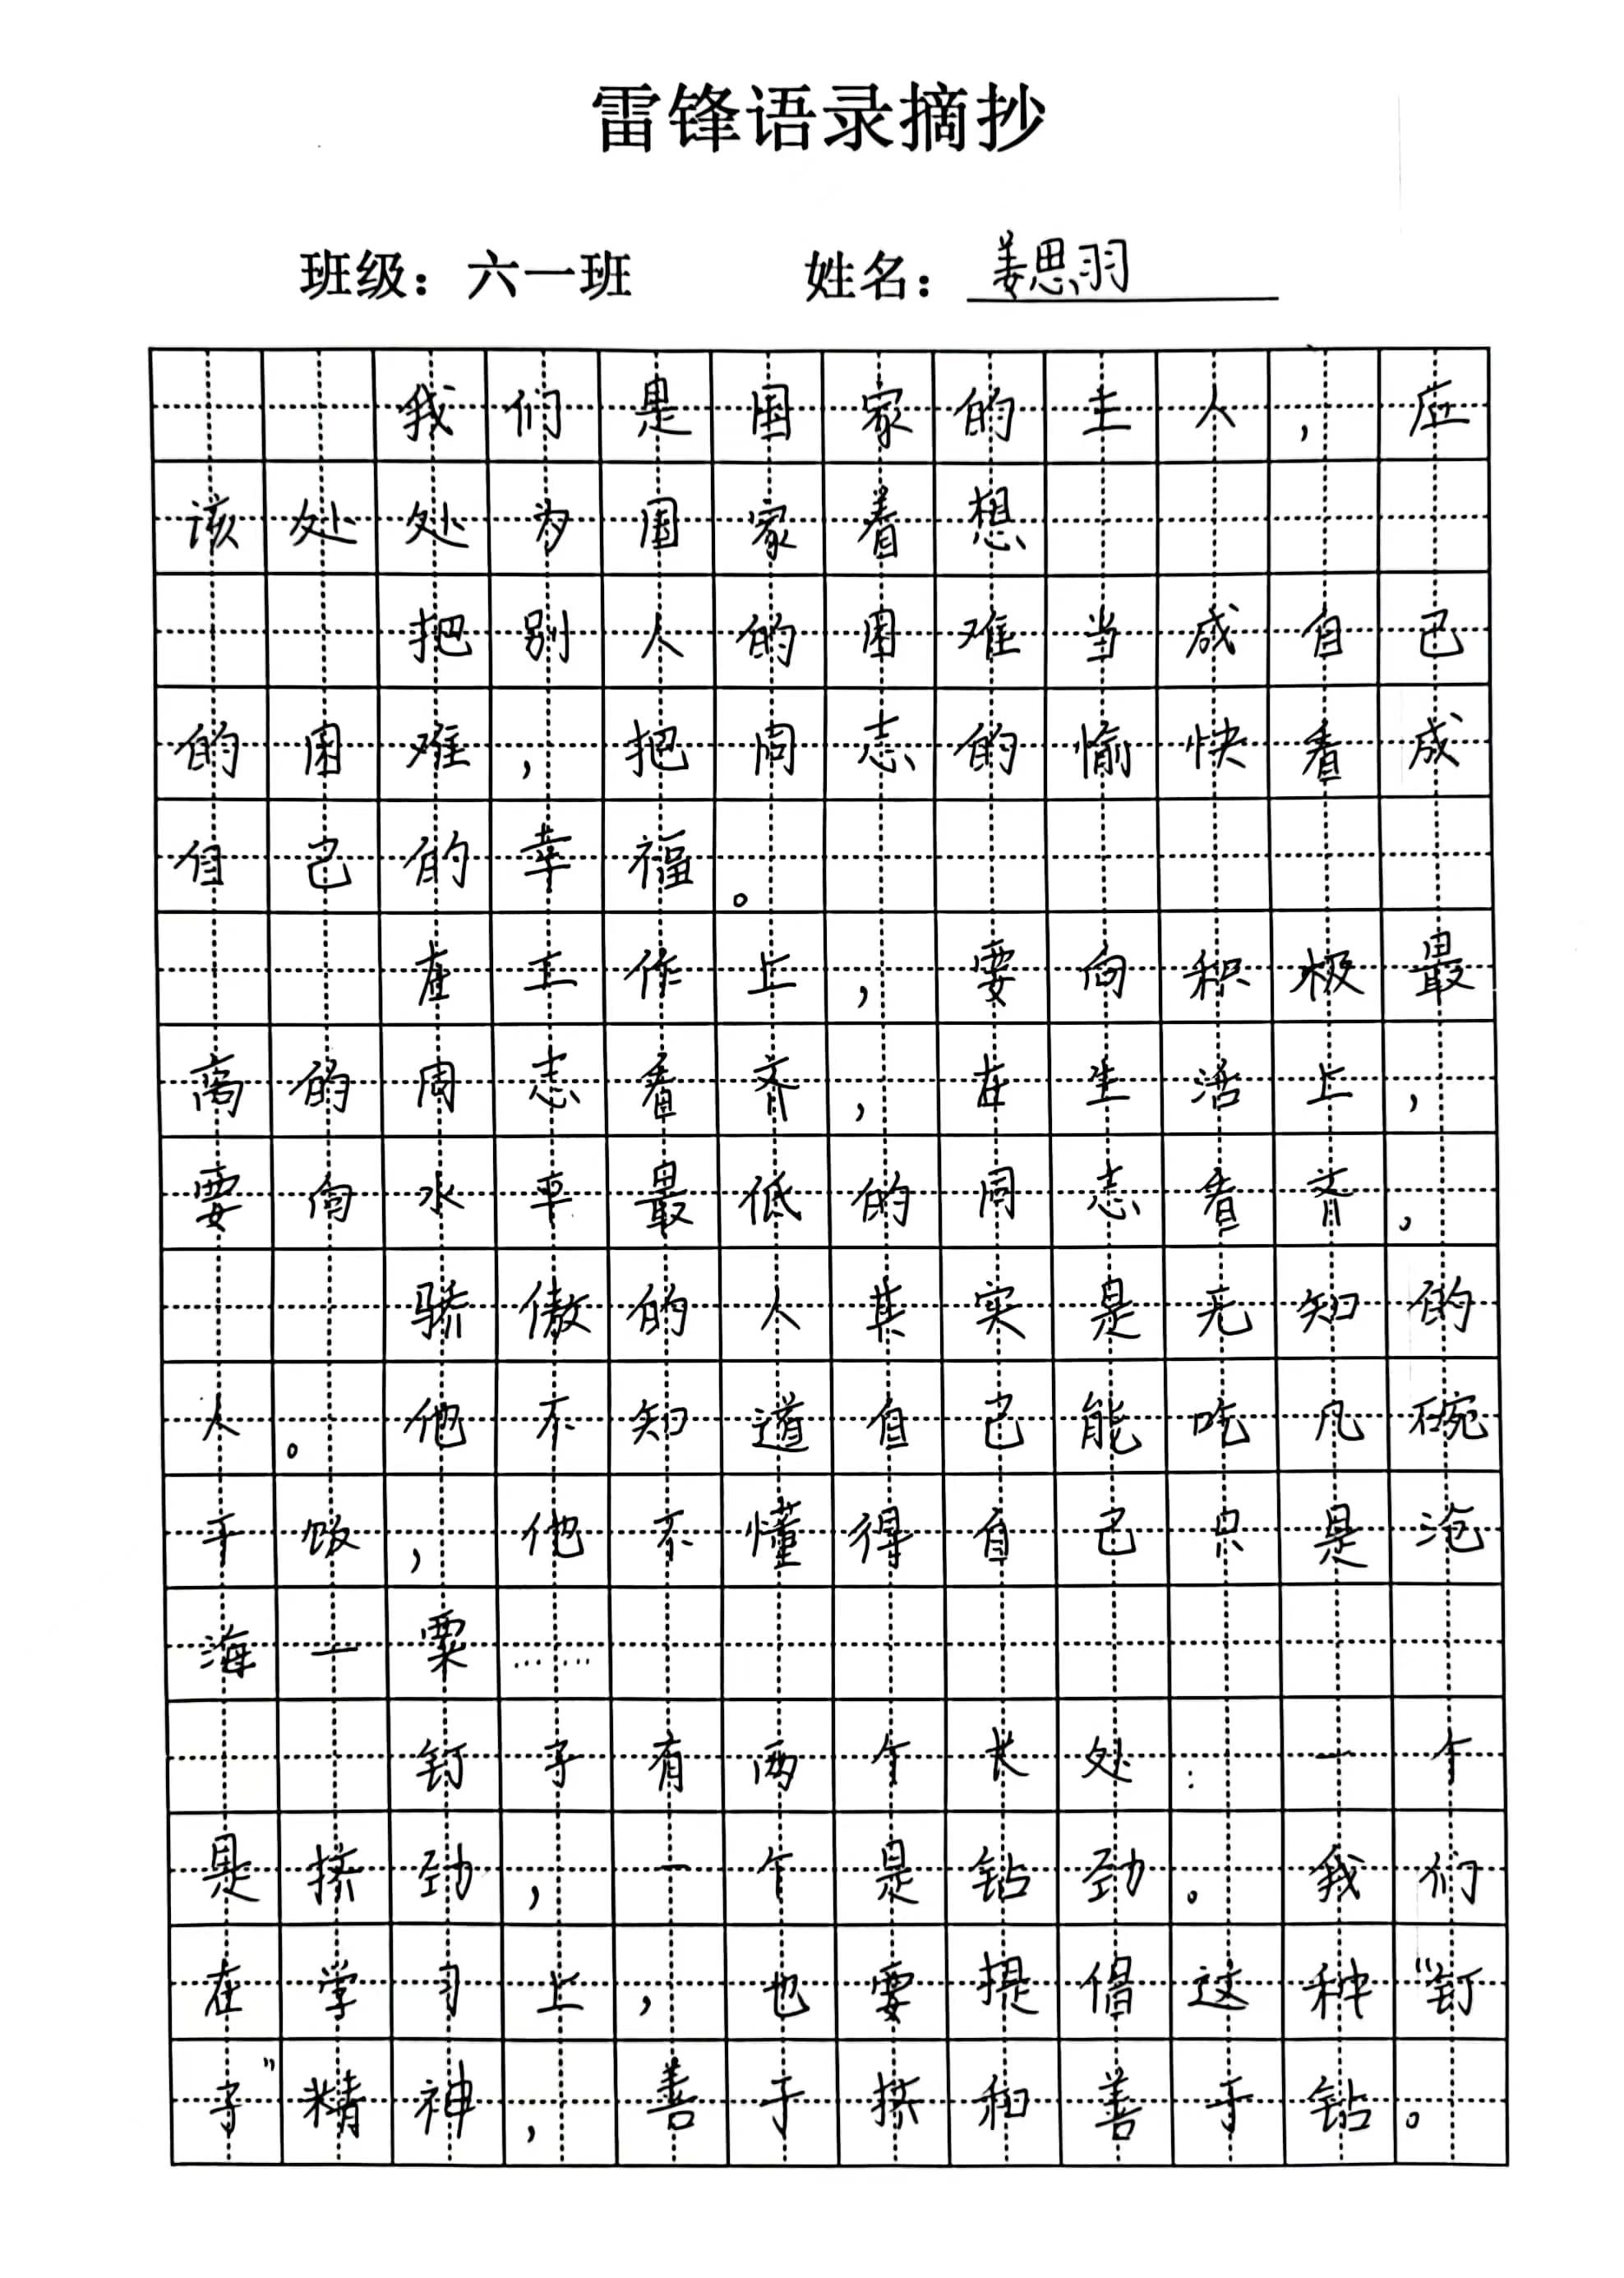 雷锋语录摘抄
班级：六一班 姓名：姜思羽
我们是国家的主人，应
该处处为国家着想
把别人的困难当成自己
的困难，把同志的愉快看成
自己的幸福。
在工作上，要向积极最
高的同志看齐，在生活上，
要向水平最低的同志看齐，
骄傲的人其实是无知的
人。他不知道自己能吃几碗
干饭，他不懂得自己只是沧
海一粟……
钉子有两个长处：一个
是挤劲，一个是钻劲。我们
在学习上，也要提倡这种“钉
子”精神，善于挤和善于钻。